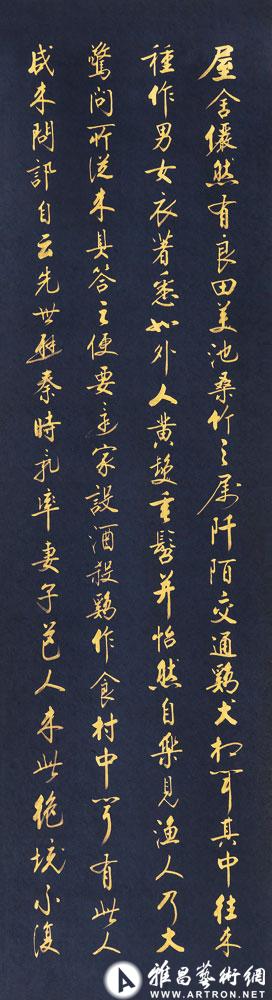 屋舍儼然有良田美池桑竹之屬阡陌交通鷄犬相聞其中往来
種作男女衣著悉如外人黄髮垂髫并怡然自樂見漁人乃大
驚問所從来具答之便要還家設酒殺鷄作食村中聞有此人
咸来問訊自云先世避秦時亂率妻子邑人来此絶境不復
雅昌藝術網
WWW.ARTRON.NET